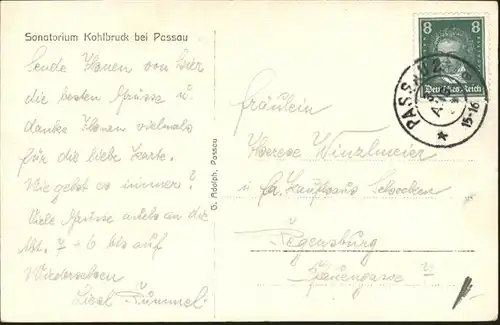 Sanatorium Kohlbruck bei Passau
Sende Ihnen von hier
die besten Grüsse u.
danke Ihnen vielmals
für die liebe Karte.
Wie geht es immer?
Viele Grüsse auch an die
Abt. 7 + 6 bis auf
Wiedersehen
Liesl Rümmel.
G. Adolph, Passau
8 8
Deutsches Reich
PASSAU 2
15-16
Fräulein
Therese Winzlmeier
i. Fa. Kaufhaus Schocken
Regensburg